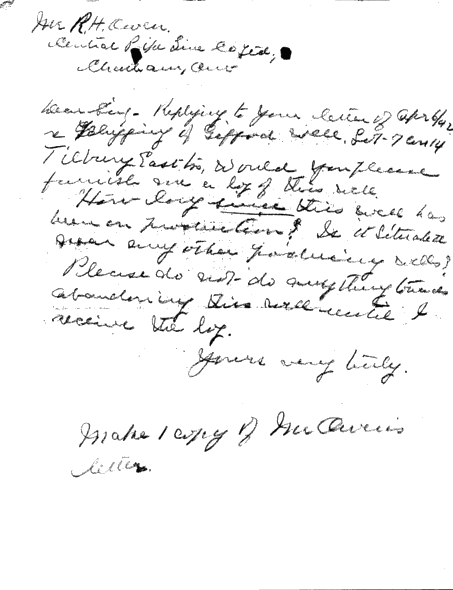 Mr R.H. Owen.
Central Pipe Line Co Ltd,
Chatham, Ont
Dear Sir,- Replying to your letter of Apr 6/42
plugging of Gifford well, Lot-7 Con 14
Tilbury East Tp, would you please
furnish me a log of this well
How long since this well has
been on production? Is it situated
near any other producing wells?
Please do not do anything towards
abandoning this well until I
receive the log.
Yours very truly.
Make 1 copy of Mr Owens
letter.